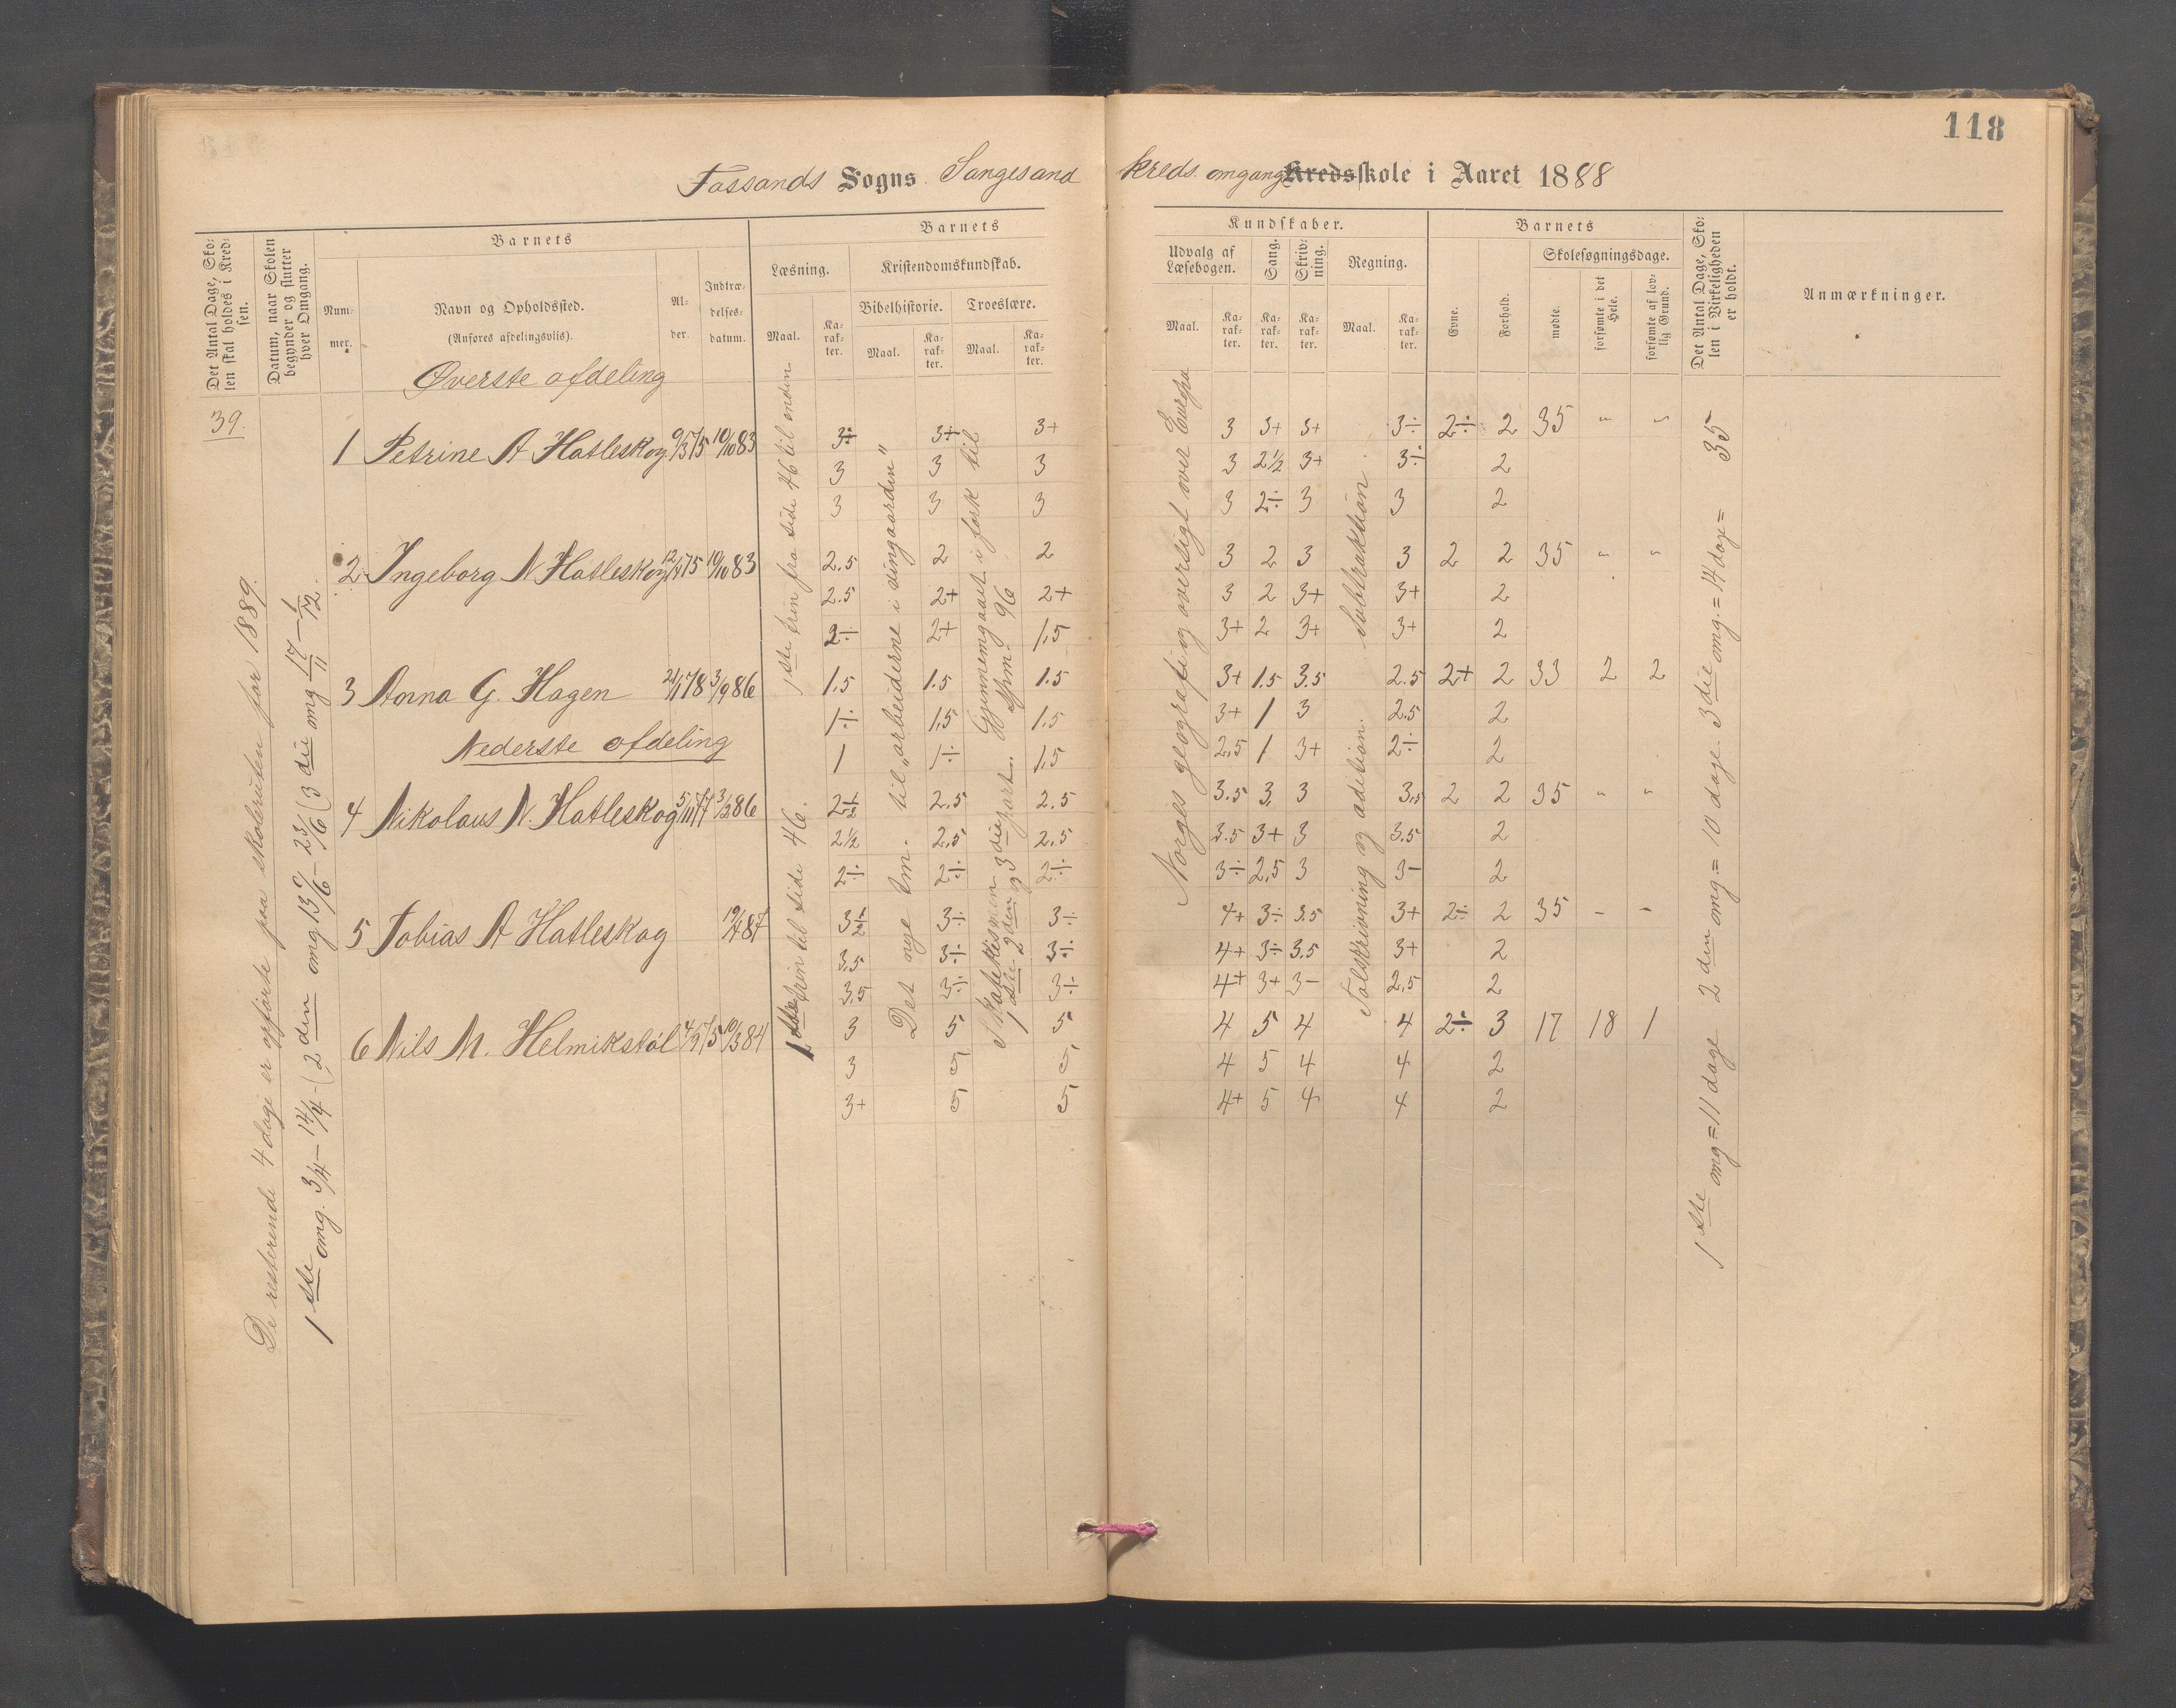 118
Fossands Sogns Sangesand kreds. omgang Kredsskole i Aaret 1888
Det Antal Dage, Skolen skal holdes i Kredsen.
Datum, naar Skolen begynder og slutter hver Omgang.
Barnets
Nummer.
Navn og Opholdssted.
(Anføres afdelingsviis).
Alder.
Indtrædelsesdatum.
Barnets Kundskaber.
Læsning.
Maal.
Karakter.
Kristendomskundskab.
Bibelhistorie.
Maal.
Karakter.
Troeslære.
Maal.
Karakter.
Udvalg af Læsebogen.
Maal.
Karakter.
Sang.
Karakter.
Skrivning.
Karakter.
Regning.
Maal.
Karakter.
Barnets
Evne.
Forhold.
Skolesøgningsdage.
mødte.
forsømte i det Hele.
forsømte af lovlig Grund.
Det Antal Dage, Skolen i Virkeligheden er holdt.
Anmærkninger.
39.
De resterende 4 dage er opførte paa skoleruten for 1889.
1ste omg. 3/4 – 14/4 (2den omg. 13/6 – 23/6 (3die omg 17/11 – 1/12.
Øverste afdeling
1 Petrine A Hatleskog 10/10 83 3÷ 3÷ 3+ 3 3+ 3+ 3÷ 2÷ 2 35 " "
3 3 3 3 2½ 3+ 3÷ 2
3 3 3 3 2÷ 3 3 2
2 Ingeborg N Hatleskog 12/4 75 10/10 83 2.5 2 2 3 2 3 3 2 2 35 " "
2.5 2+ 2+ 3 2 3+ 3+ 2
2÷ 2+ 1,5 3+ 2 3+ 3+ 2
3 Anna G. Hagen 21/1 78 3/9 86 1.5 1.5 1.5 3+ 1.5 3.5 2.5 2+ 2 33 2 2
1÷ 1.5 1.5 3+ 1 3 2.5 2
1 1÷ 1,5 2,5 1 3+ 2÷ 2
Nederste afdeling
4 Nikolaus N. Hatleskog 5/11 77 3/2 86 2½ 2.5 2.5 3.5 3. 3 3,5 2 2 35 " "
2½ 2.5 2.5 3.5 3+ 3 3.5 2
2÷ 2÷ 2÷ 3÷ 2,5 3 3- 2
5 Tobias A Hatleskog 19/4 87 3½ 3÷ 3÷ 4+ 3÷ 3.5 3+ 2÷ 2 35 – –
3.5 3÷ 3÷ 4+ 3÷ 3.5 3+ 2
3.5 3÷ 3÷ 4+ 3+ 3– 2,5 2
6 Nils M. Helmikstøl 4/9 75 10/3 84 3 5 5 4 5 4 4 2÷ 3 17 18 1
3 5 5 4 5 4 4 2
3+ 5 5 4+ 5 4 4 2
1ste trin fra side 46 til enden
1ste trin til side 46.
Det nye tm. til „arbeiderne i vingaarden"
Gjennemgaaet i forsk til
Spm. 96
1ste 2den og 3die part.
Norges geografi og oversigt over Europa
Talskrivning og adition. Subtraktion.
1ste omg = 11 dage 2den omg. = 10 dage. 3die omg. = 14 dage = 35